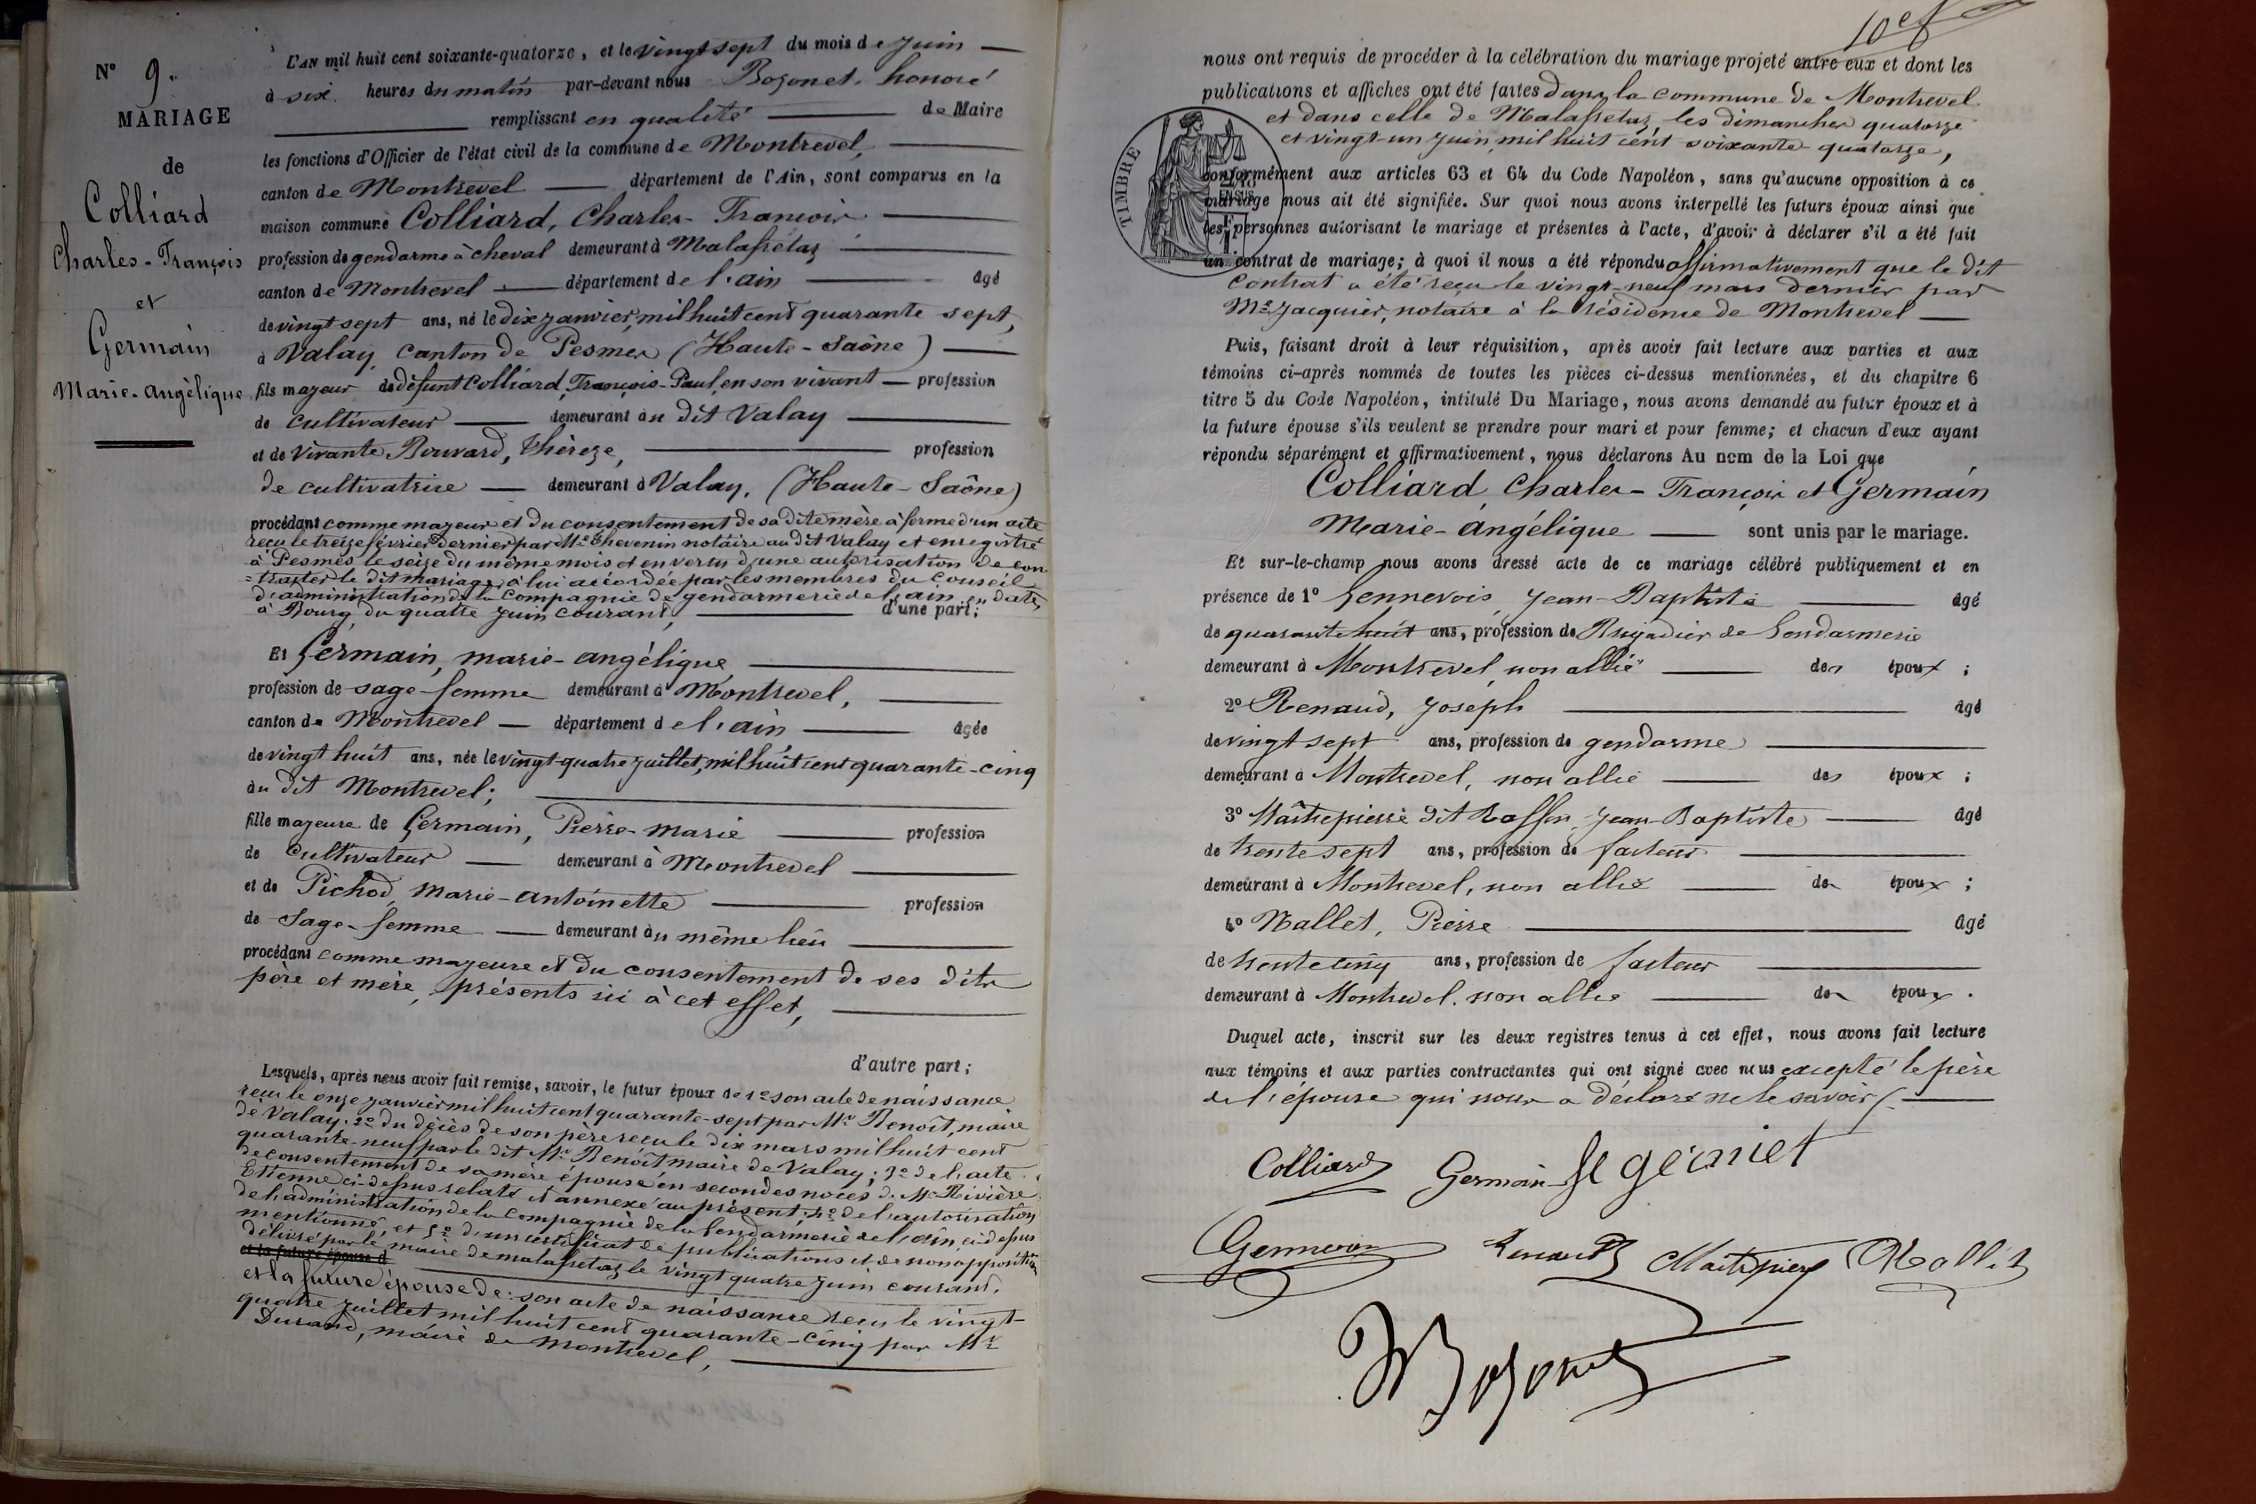 N° 9.
MARIAGE
de
Colliard
Charles-François
et
Germain
Marie-angélique
L'AN mil huit cent soixante-quatorze, et le vingt sept du mois de juin
à six heures du matin par-devant nous Bozonet, honoré
remplissant en qualité de Maire
les fonctions d'Officier de l'état civil de la commune de Montrevel,
canton de Montrevel département de l'Ain, sont comparus en la
maison commune Colliard, Charles-François
profession de gendarme à cheval demeurant à Malafretaz
canton de Montrevel département de l'ain âgé
de vingt sept ans, né le dix janvier, mil huit cent quarante sept,
à Valay, canton de Pesmes (Haute-Saône)
fils majeur de défunt Colliard, François-Paul, en son vivant profession
de cultivateur demeurant au dit Valay
et de vivante Bouvard, Thérèze, profession
de cultivatrice demeurant à Valay, (Haute-Saône)
procédant comme majeur et du consentement de sa dite mère à forme d'un acte
reçu le treize février dernier par Me Thevenin notaire au dit Valay et enregistré
à Pesmes le seize du même mois et en vertu d'une autorisation de con
=tracter le dit mariage à lui accordée par les membres du Conseil
d'administration de la Compagnie de gendarmerie de l'ain en date,
à Bourg, du quatre juin courant, d'une part;
Et Germain, marie-angélique,
profession de sage-femme demeurant à Montrevel,
canton de Montrevel département de l'ain âgée
de vingt huit ans, née le vingt-quatre juillet, mil huit cent quarante-cinq
au dit Montrevel;
fille majeure de Germain, Pierre-marie profession
de cultivateur demeurant à Montrevel
et de Pichod, marie-antoinette profession
de Sage-femme demeurant au même lieu
procédant comme majeure et du consentement de ses dits
père et mère, présents ici à cet effet,
d'autre part;
Lesquels, après nous avoir fait remise, savoir, le futur époux de 1° son acte de naissance
reçu le onze janvier mil huit cent quarante-sept par Mr Benoît, maire
de Valay; 2° du décès de son père reçu le dix mars mil huit cent
quarante-neuf par le dit Mr Benoît maire de Valay; 3° de l'acte
de consentement de sa mère épouse en secondes noces de Mr Rivière
Etienne ci-dessus relaté et annexé au présent; 4° de l'autorisation
de l'administration de la Compagnie de la Gendarmerie de l'ain ci-dessus
mentionné, et 5° d'un certificat de publications et de non opposition
délivré par le maire de malafretaz le vingt quatre juin courant.
et la future épouse d
et la future épouse de: son acte de naissance reçu le vingt-
quatre juillet mil huit cent quarante-cinq par Mr
Durand, maire de Montrevel,
10e f
nous ont requis de procéder à la célébration du mariage projeté entre eux et dont les
publications et affiches ont été faites dans la commune de Montrevel
et dans celle de Malafretaz les dimanches quatorze
et vingt-un juin, mil huit cent soixante-quatorze,
TIMBRE
conformément aux articles 63 et 64 du Code Napoléon, sans qu'aucune opposition à ce
mariage nous ait été signifiée. Sur quoi nous avons interpellé les futurs époux ainsi que
les personnes autorisant le mariage et présentes à l'acte, d'avoir à déclarer s'il a été fait
un contrat de mariage; à quoi il nous a été répondu affirmativement que le dit
contrat a été reçu le vingt-neuf mars dernier par
Me Jacquier, notaire à la résidence de Montrevel
Puis, faisant droit à leur réquisition, après avoir fait lecture aux parties et aux
témoins ci-après nommés de toutes les pièces ci-dessus mentionnées, et du chapitre 6
titre 5 du Code Napoléon, intitulé Du Mariage, nous avons demandé au futur époux et à
la future épouse s'ils veulent se prendre pour mari et pour femme; et chacun d'eux ayant
répondu séparément et affirmativement, nous déclarons Au nom de la Loi que
Colliard Charles-François et Germain
Marie-angélique sont unis par le mariage.
Et sur-le-champ nous avons dressé acte de ce mariage célébré publiquement et en
présence de 1° Gennevois Jean-Baptiste âgé
de quarante huit ans, profession de Brigadier de Gendarmerie
demeurant à Montrevel, non allié des époux;
2° Renaud, Joseph âgé
de vingt sept ans, profession de gendarme
demeurant à Montrevel, non allié des époux;
3° Maîtrepierre dit Bossu, Jean-Baptiste âgé
de trente sept ans, profession de facteur
demeurant à Montrevel, non allié des époux;
4° Mallet, Pierre âgé
de trente cinq ans, profession de facteur
demeurant à Montrevel, non allié des époux.
Duquel acte, inscrit sur les deux registres tenus à cet effet, nous avons fait lecture
aux témoins et aux parties contractantes qui ont signé avec nous excepté le père
de l'épouse qui nous a déclaré ne le savoir
Colliard Germain
Gennevois Renaud Maitrepierre Mallet
Bozonet